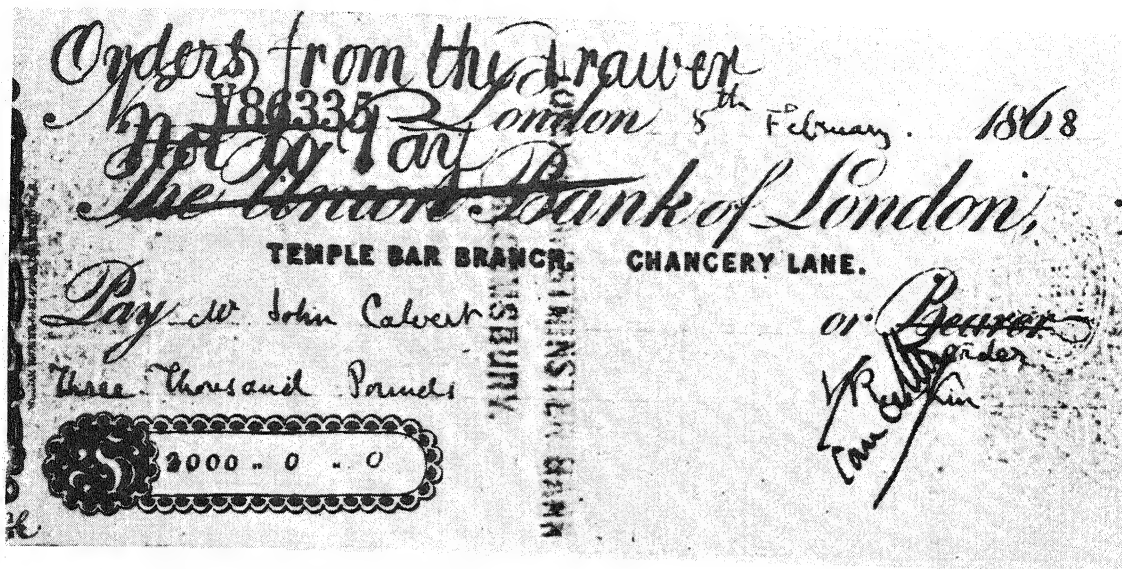 Orders from the drawer
No. Y86335 London 8th February. 1868
Not to Pay
The Union Bank of London,
TEMPLE BAR BRANCH, CHANCERY LANE.
Pay Mr John Calvert or Bearer
order
Three Thousand Pounds
J Ruskin
3000 .. 0 .. 0
WESTMINSTER BANK
BLOOMSBURY.